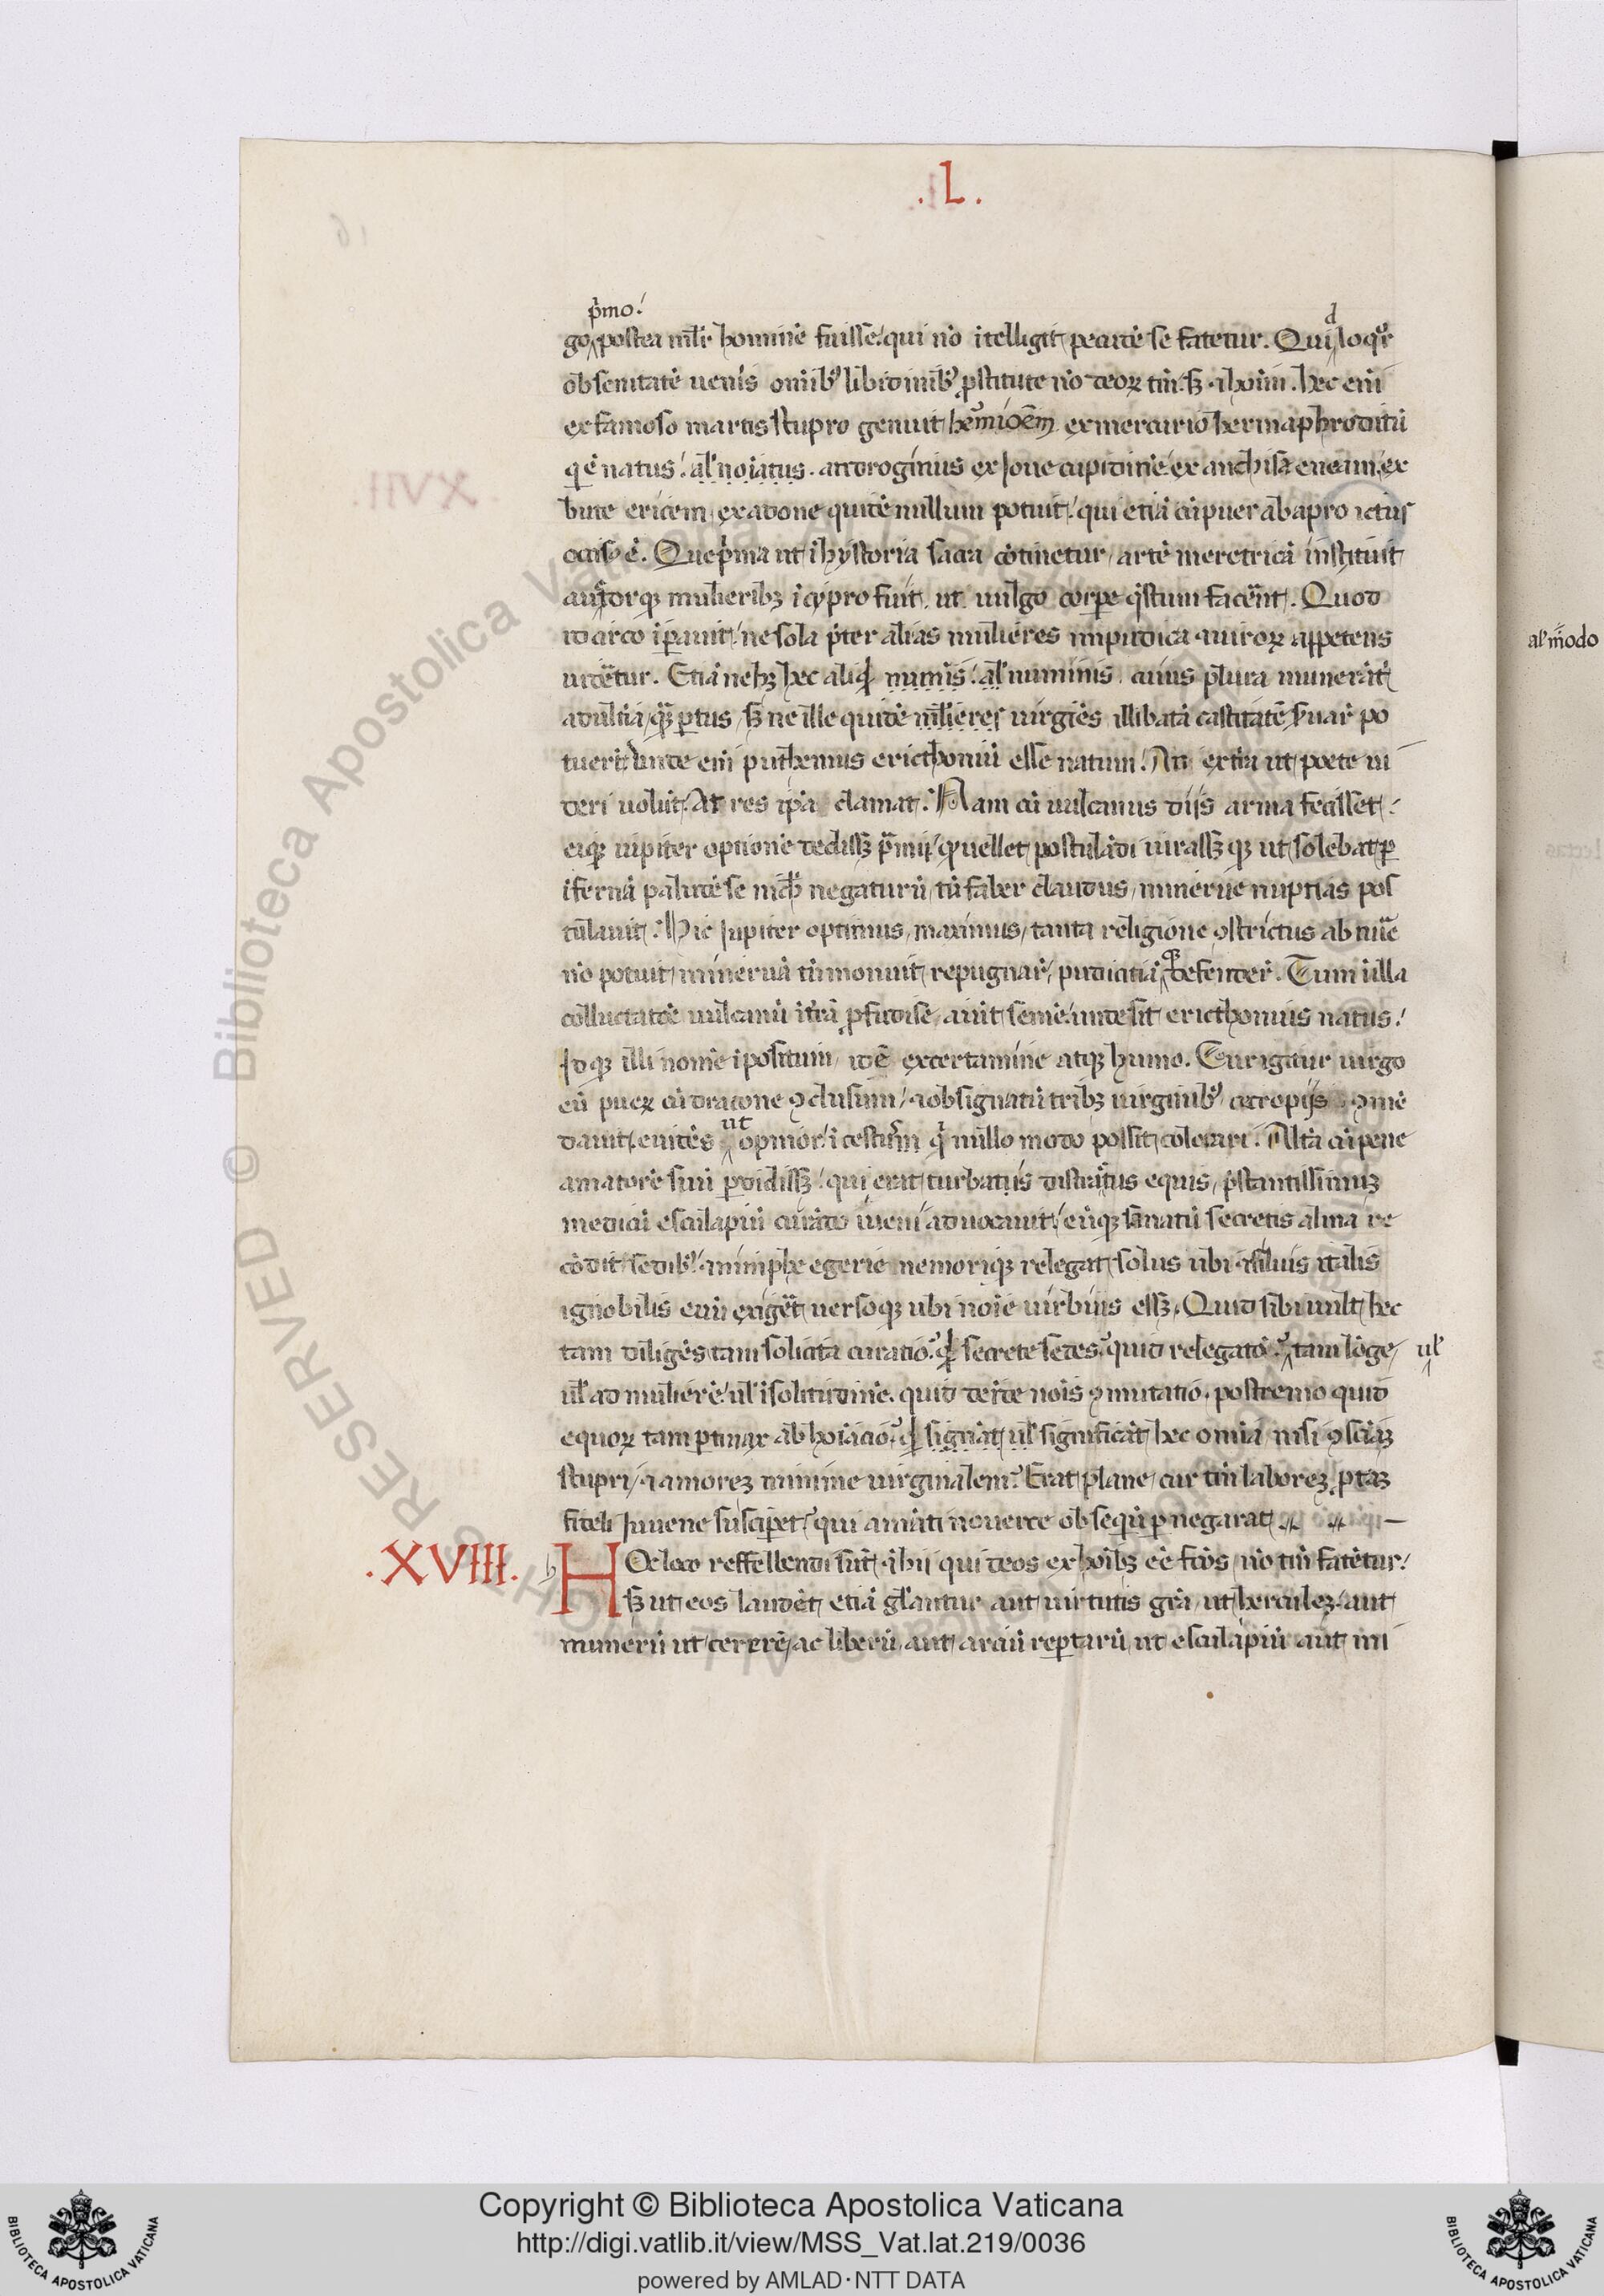 .L.
p̄mo!
go postea ml̄r hominē fuisse! qui nō ītelligit pecudē se fatetur. Qui d loqr̄
obscenitatē uenis om̄ib; libidinib; p̱stitute nō deoꝝ tm̄. sꝫ ⁊ hoīm. hec eni
ex famoso martis stupro genuit ex mercurio hermaphroditū
q ē natus! al' noīatus. androginius ex Ioue cupidinē! ex anchisa eneam! ex
bute ericem ex adone quidē nullum potuit! qui etiā cū puer ab apro ictus
occis; ē. Que p̄ma ut ī hystoria sacra cōtinetur, artē meretriciā instituit
auctorqꝫ mulieribꝫ ī cypro fuit, ut uulgo corpe q̄stum facerēt. Quod
idcirco īpauit! ne sola p̄ter alias mulieres impudica ⁊ uiroꝝ appetens
uidētur. Etiā ne hec aliqd numis! al' numinis. cuius plura
adultia, qm̄ ptus, sꝫ ne ille quidē ml̄ieres uirgīes illibatā castitatē suar̄ po
tuerūt. unde eni putemus ericthoniū esse natum! An ex tra ut poete ui
deri uolūt. At res ipa clamat. Nam cū uulcanus diis arma fecisset!
eiqꝫ iupiter optionē dedissꝫ p̄mii! q uellet postulādi iurassꝫ qꝫ ut solebat p
īfernā paludē se nichil negaturū, tū faber claudus, minerue nuptias pos
tulauit. Hic Iupiter optimus, maximus, tanta religione ꝯstrictus abnuē
nō potuit, mineruā tn̄ monuit, repugnar̄, pudicitiā qꝫ defender̄. Tum ī illa
colluctatōe uulcanū ī trā p̱fudisse aiūt semē! unde sit ericthonius natus!
Idqꝫ illi nomē īpositum, id ē ex certamine atqꝫ humo. Cur igitur uirgo
eū pueꝝ cū dracone ꝯclusum, ⁊ obsignatū tribꝫ uirginib; cecropiis ꝯmē
dauit, euidēs ut opinor! ī cestum q nullo modo possit colorari. Altā cū pene
amatorē suū pdidissꝫ! qui erat turbatis distractus equis, p̄stantissimuꝫ
medicū esculapiū curādo iueni aduocauit! eūqꝫ sanatū secretis alma re
cōdit sedib;! ⁊ nimphe egerie nemoriqꝫ relegat, solus ubi ī siluis italis
ignobilis euū exigēt uersoqꝫ ubi noīe uirbius essꝫ. Quid sibi uult hec
tam diligēs, tam solicita curatio? qd secrete sedes? quid relegatō? tam lōge, ul'
ul' ad mulierē! ul' ī solitudinē. quid deīde nois ꝯmutatio. postremo quid
equoꝝ tam ptinax abhoīacio? qd signāt, ul' significāt hec omia, nisi ꝯsciāꝫ
stupri, ⁊ amoreꝫ minime uirginalem? Erat plane, cur tm̄ laboreꝫ p̱
fideli Iuuene susciperet, qui amāti nouerce obsequiū pnegarat
.XVIII. h HOc loco reffellendi sūt ⁊ hii qui deos ex hoībꝫ eē fc̄os, nō tm̄ fatētur!
Sꝫ ut eos laudēt, etiā gl̄antur aut uirtutis grā, ut herculeꝫ! aut
munerū ut cererē, ac liberū, aut arciū reptarū, ut esculapiū aut mi
al' mōdo
Copyright © Biblioteca Apostolica Vaticana
http://digi.vatlib.it/view/MSS_Vat.lat.219/0036
powered by AMLAD·NTT DATA
BIBLIOTECA APOSTOLICA VATICANA
BIBLIOTECA APOSTOLICA VATICANA